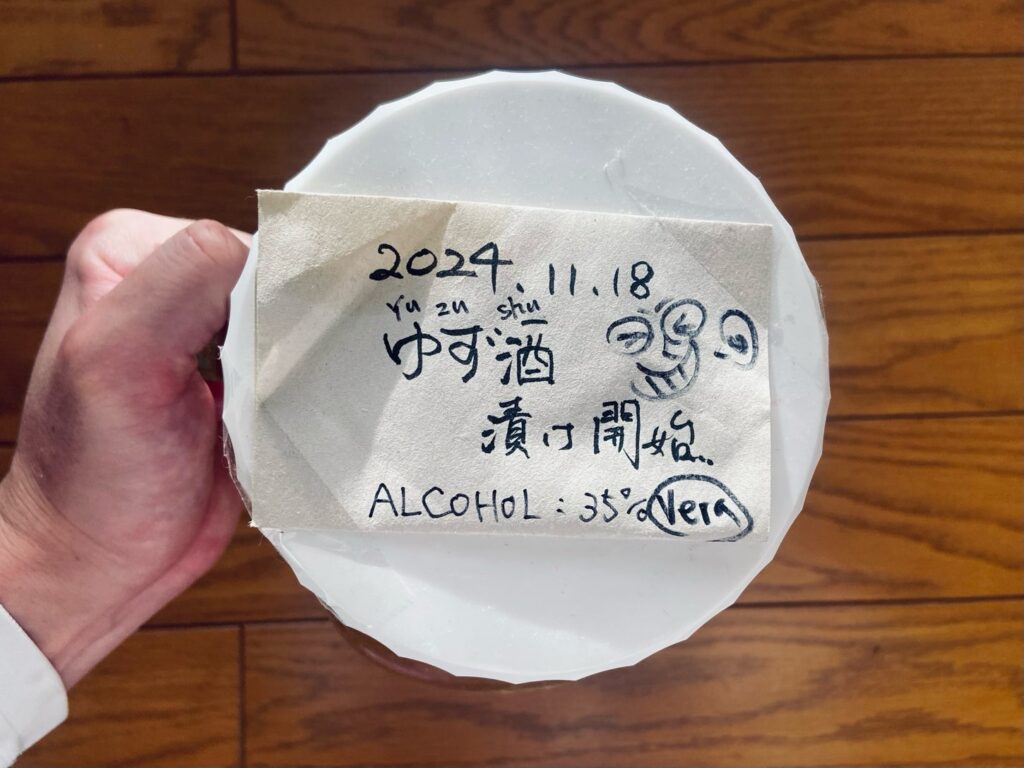 2024.11.18
yu zu shu
ゆず酒
漬け開始..
ALCOHOL : 35% Vera